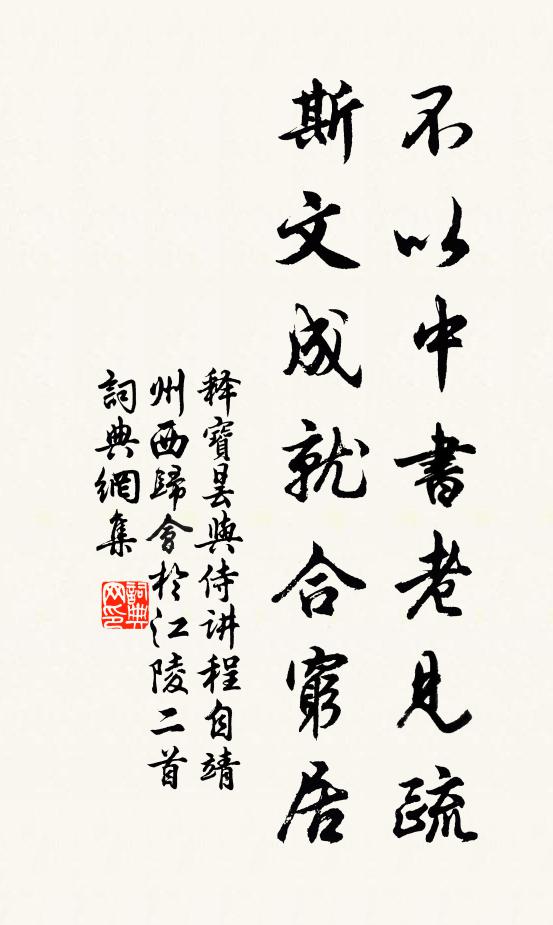 不以中書老見疏
斯文成就合窮居
释寶曇與侍讲程自靖
州西歸會於江陵二首
詞典網集
詞典網印